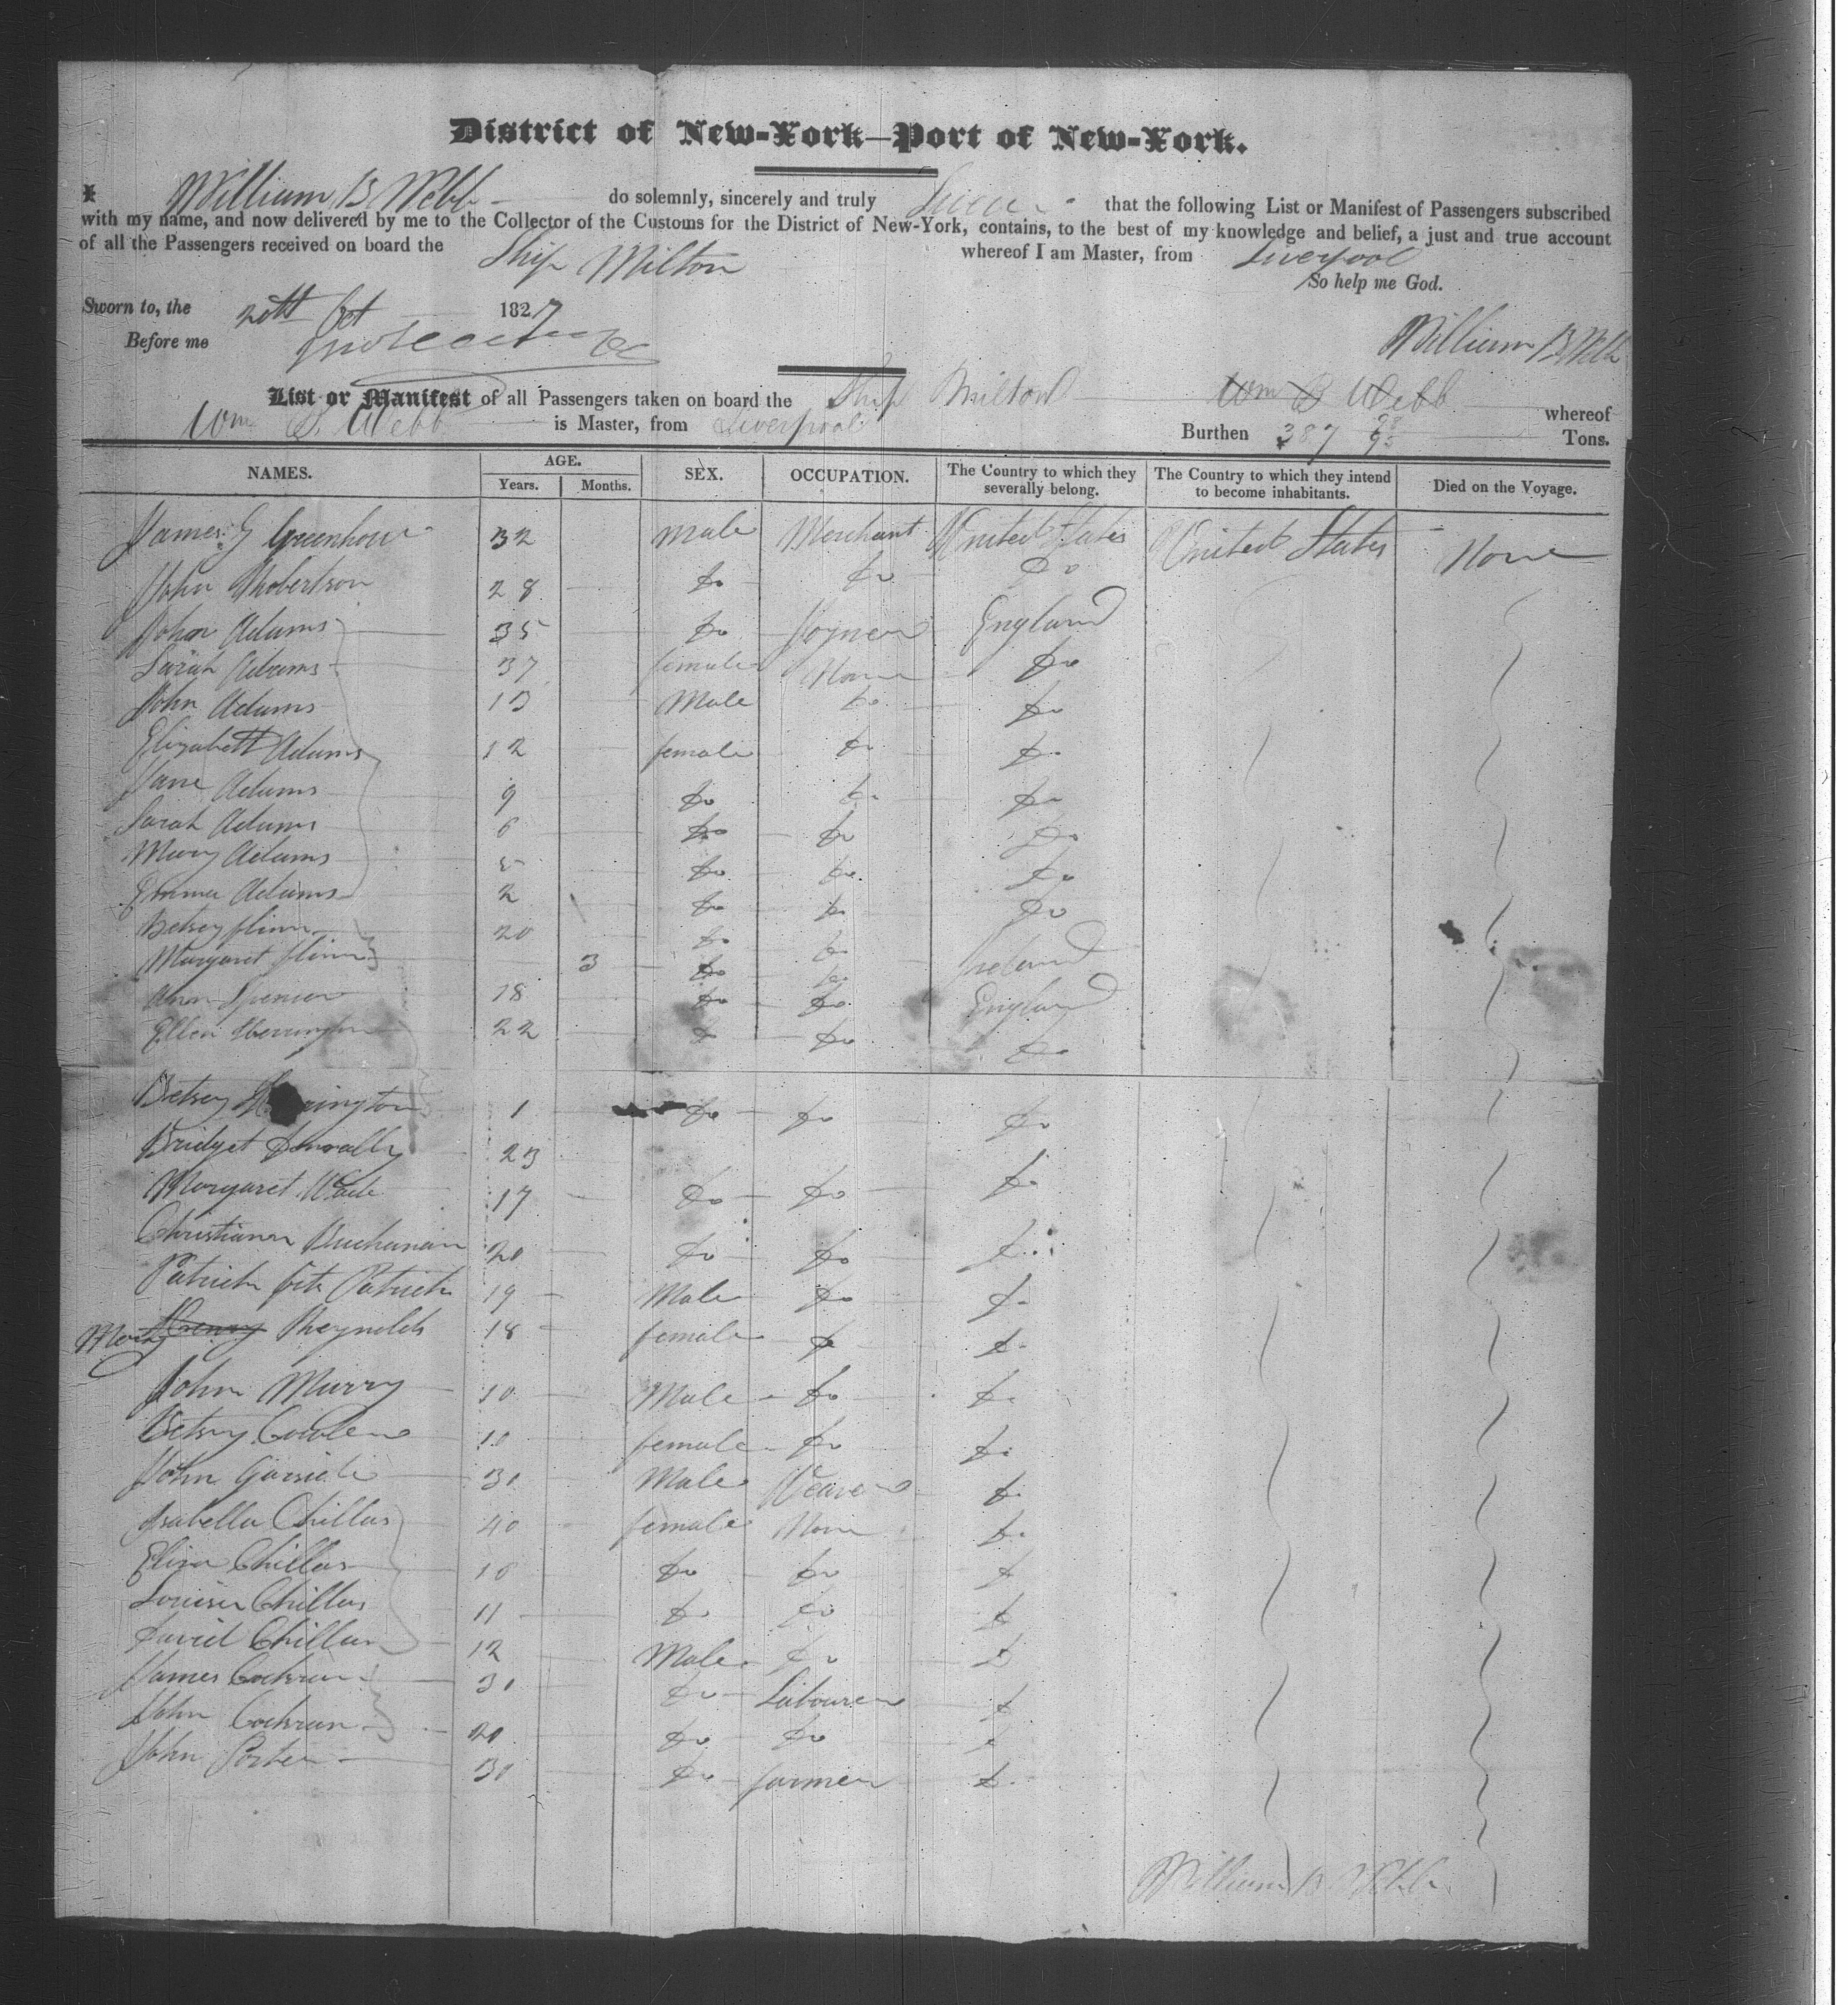 District of New-York—Port of New-York.
I William B Webb do solemnly, sincerely and truly Swear that the following List or Manifest of Passengers subscribed
with my name, and now delivered by me to the Collector of the Customs for the District of New-York, contains, to the best of my knowledge and belief, a just and true account
of all the Passengers received on board the Ship Milton whereof I am Master, from Liverpool
So help me God.
Sworn to, the 20th Oct 1827
Before me
William B Webb
List or Manifest of all Passengers taken on board the Ship Milton Wm B Webb whereof
Wm B. Webb is Master, from Liverpool Burthen 387 Tons.
NAMES. AGE. Years. Months. SEX. OCCUPATION. The Country to which they severally belong. The Country to which they intend to become inhabitants. Died on the Voyage.
James G Greenhow 32 Male Merchant United States United States None
John Robertson 28 Do Do Do
John Adams 35 Do Joyner England
Sarah Adams 37 female None Do
John Adams 13 Male Do Do
Elizabeth Adams 12 female Do Do
Jane Adams 9 Do Do Do
Sarah Adams 6 Do Do Do
Mary Adams 5 Do Do Do
Emma Adams 2 Do Do Do
Betsey flinn 20 Do Do Ireland
Margaret flinn 3 Do Do
Ann Spencer 18 Do Do England
Ellen Herrington 22 Do Do Do
Betsey 1 Do Do Do
Bridget 23 Do
Margaret Wade 17 Do Do
Christianna Buchanan 20 Do Do Do
Patrick fitz Patrick 19 Male Do Do
Mary Henry Reynolds 18 female Do Do
John Murry 10 Male Do Do
Betsey 10 female Do Do
John Garside 31 Male Weaver Do
Isabella Chillas 40 female None Do
Eliza Chillas Do Do Do
Louisa Chillas 11 Do Do Do
David Chillas 12 Male Do Do
James Cochran 31 Do Labourer Do
John Cochran 20 Do Do Do
John Porter 30 Do farmer Do
William B Webb